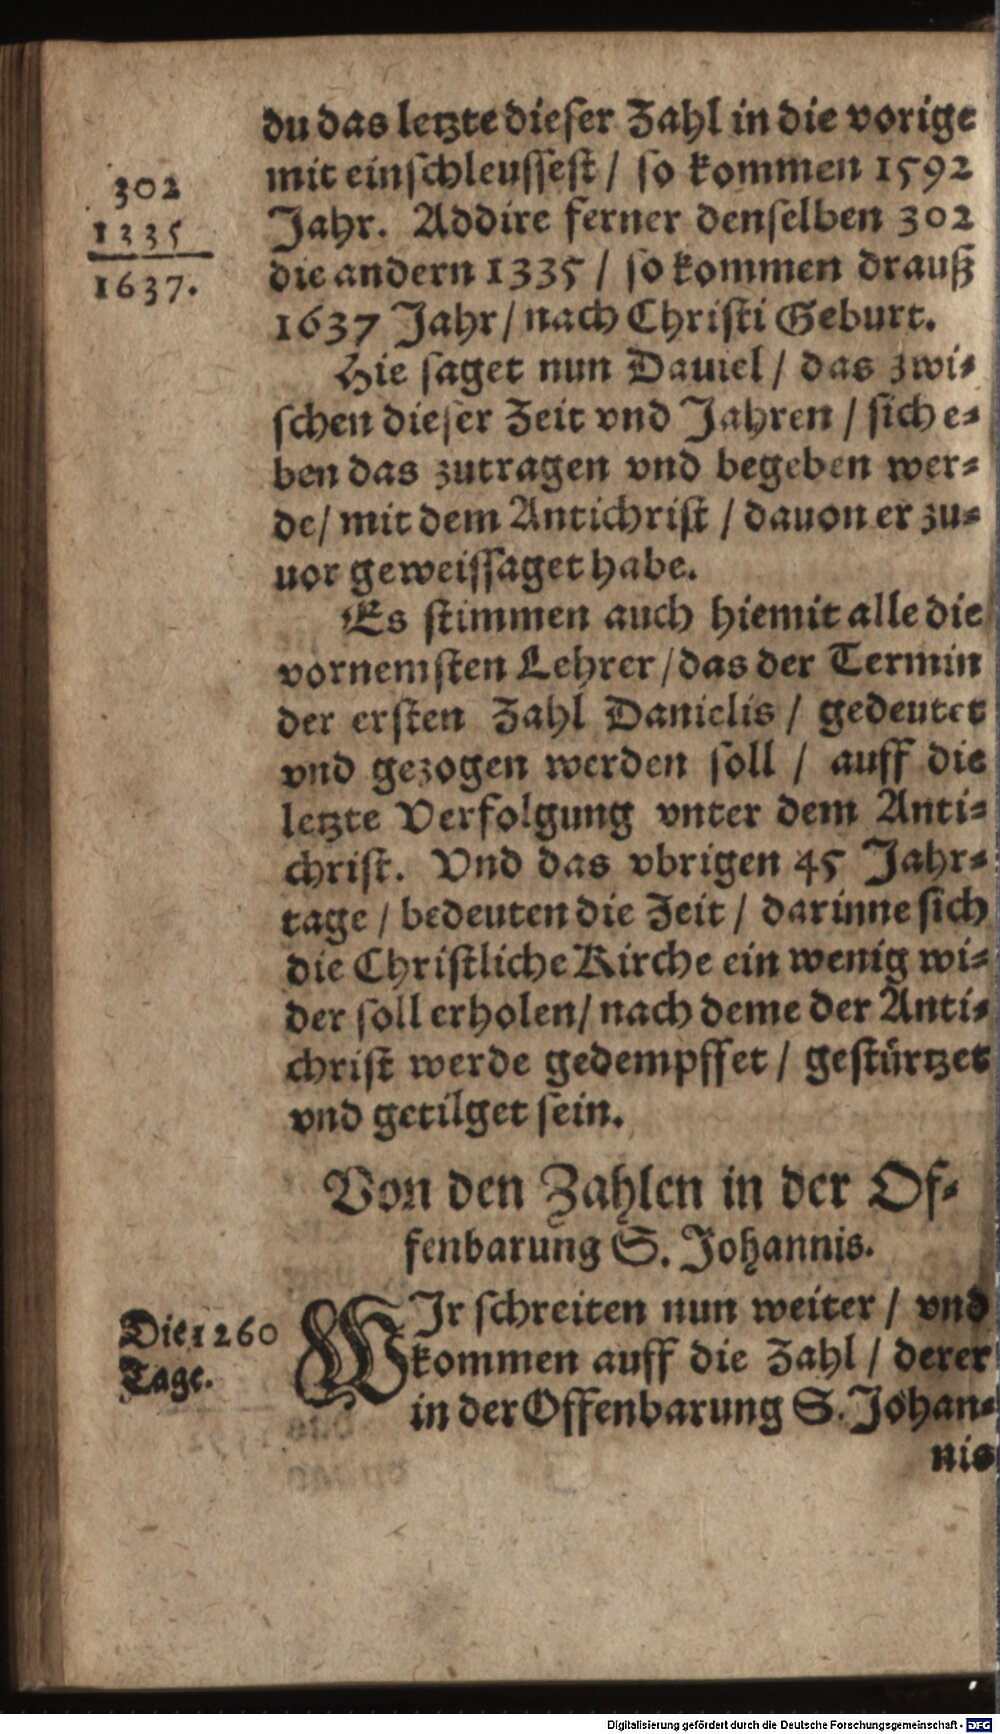 du das letzte dieser Zahl in die vorige
mit einschleussest / so kommen 1592
Jahr. Addire ferner denselben 302
die andern 1335 / so kommen drauß
1637 Jahr / nach Christi Geburt.
302
1335
1637.
Hie saget nun Daniel / das zwi-
schen dieser Zeit vnd Jahren / sich e-
ben das zutragen vnd begeben wer-
de / mit dem Antichrist / dauon er zu-
uor geweissaget habe.
Es stimmen auch hiemit alle die
vornemsten Lehrer / das der Termin
der ersten Zahl Danielis / gedeutet
vnd gezogen werden soll / auff die
letzte Verfolgung vnter dem Anti-
christ. Vnd das vbrigen 45 Jahr-
tage / bedeuten die Zeit / darinne sich
die Christliche Kirche ein wenig wi-
der soll erholen / nach deme der Anti-
christ werde gedempffet / gestürtzet
vnd getilget sein.
Von den Zahlen in der Of-
fenbarung S. Johannis.
Die 1260
Tage.
WIr schreiten nun weiter / vnd
kommen auff die Zahl / derer
in der Offenbarung S. Johan-
nis
Digitalisierung gefördert durch die Deutsche Forschungsgemeinschaft - DFG